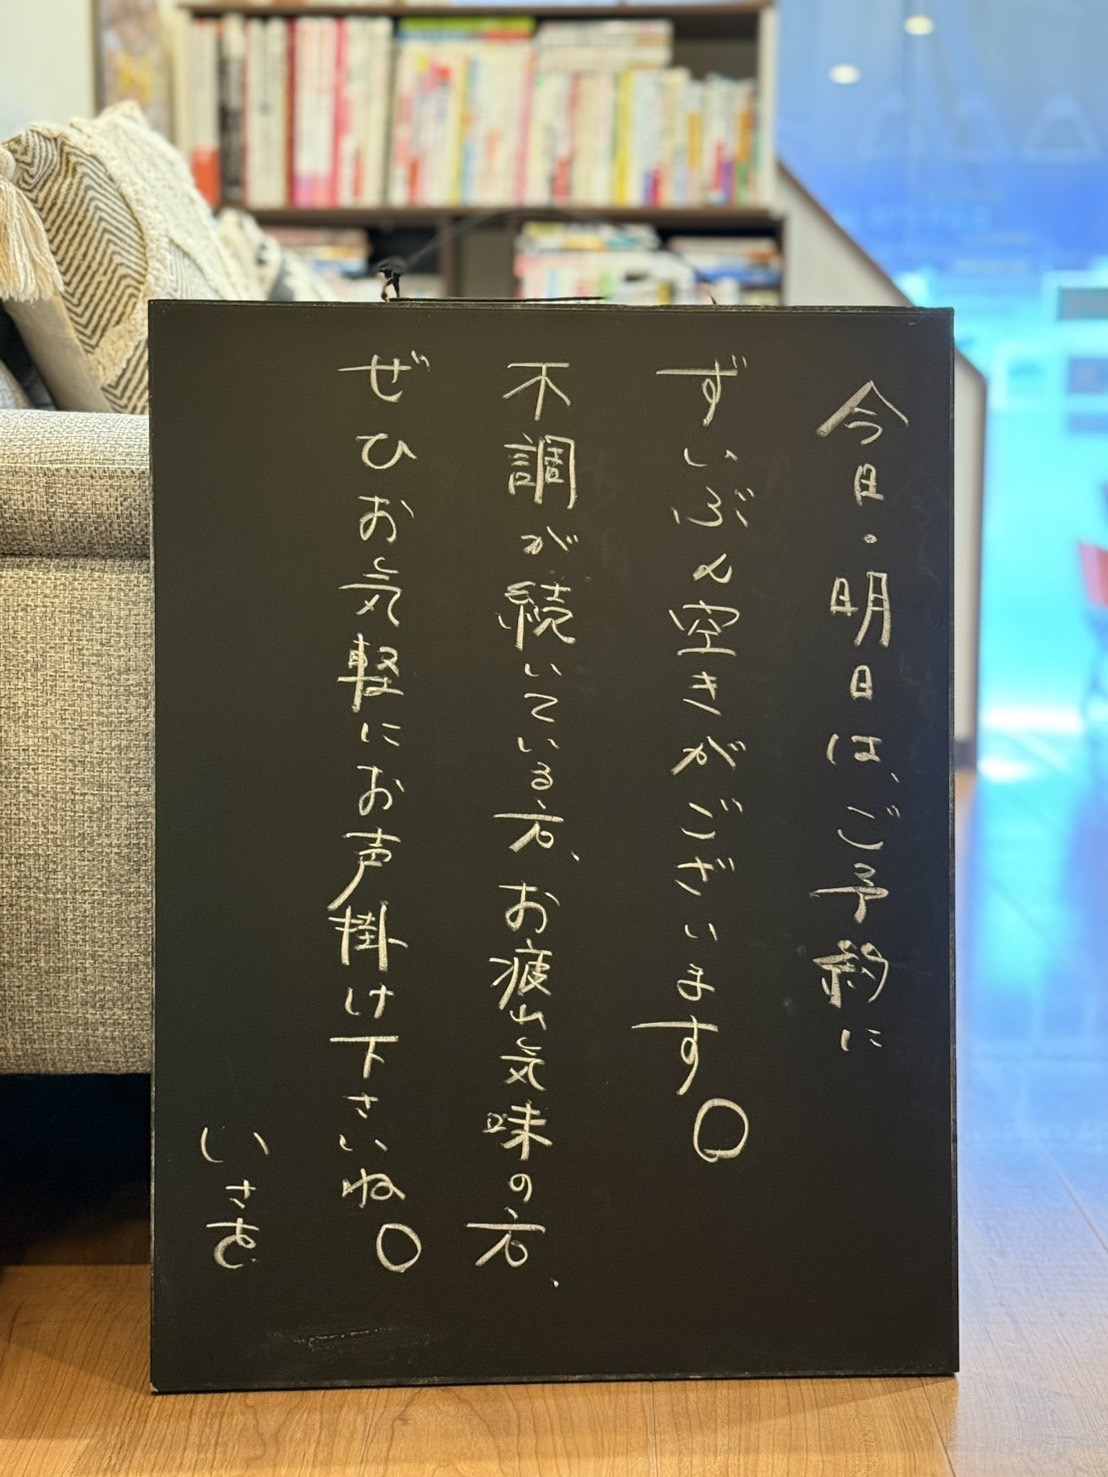 今日・明日は、ご予約に
ずいぶん空きがございます。
不調が続いている方、お疲れ気味の方、
ぜひお気軽にお声掛け下さいね。
いさを